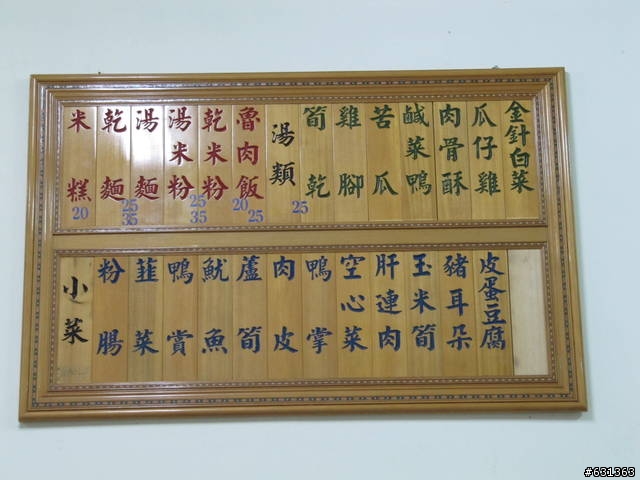 米糕
20
乾麵
湯麵
25
35
湯米粉
乾米粉
25
35
魯肉飯
20
25
湯類
25
筍乾
雞腳
苦瓜
鹹菜鴨
肉骨酥
瓜仔雞
金針白菜
小菜
粉腸
韮菜
鴨賞
魷魚
蘆筍
肉皮
鴨掌
空心菜
肝連肉
玉米筍
豬耳朵
皮蛋豆腐
#631363